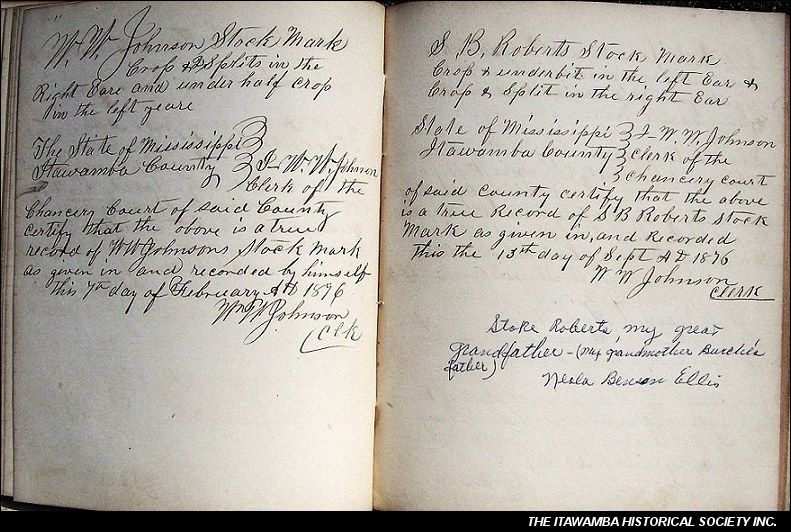 W. W. Johnson Stock Mark
Crop & Splits in the
Right Eare and under half crop
in the left yeare
The State of Mississippi
Itawamba County
I W. W. Johnson
Clerk of the
Chancery Court of said County
certify that the above is a true
record of W W Johnsons Stock Mark
as given in and recorded by himself
this 7th day of February AD 1876
Wm W Johnson
Clk
S. B. Roberts Stock Mark
Crop & underbit in the left Ear &
Crop & Split in the right Ear
State of Mississippi
Itawamba County
I W. W. Johnson
Clerk of the
chancery court
of said county certify that the above
is a true Record of S B Roberts Stock
Mark as given in, and Recorded
this the 13th day of Sept AD 1876
W W Johnson
Clerk
Stoke Roberts, my great
grandfather - (my grandmother
father)
Benson Ellis
THE ITAWAMBA HISTORICAL SOCIETY INC.